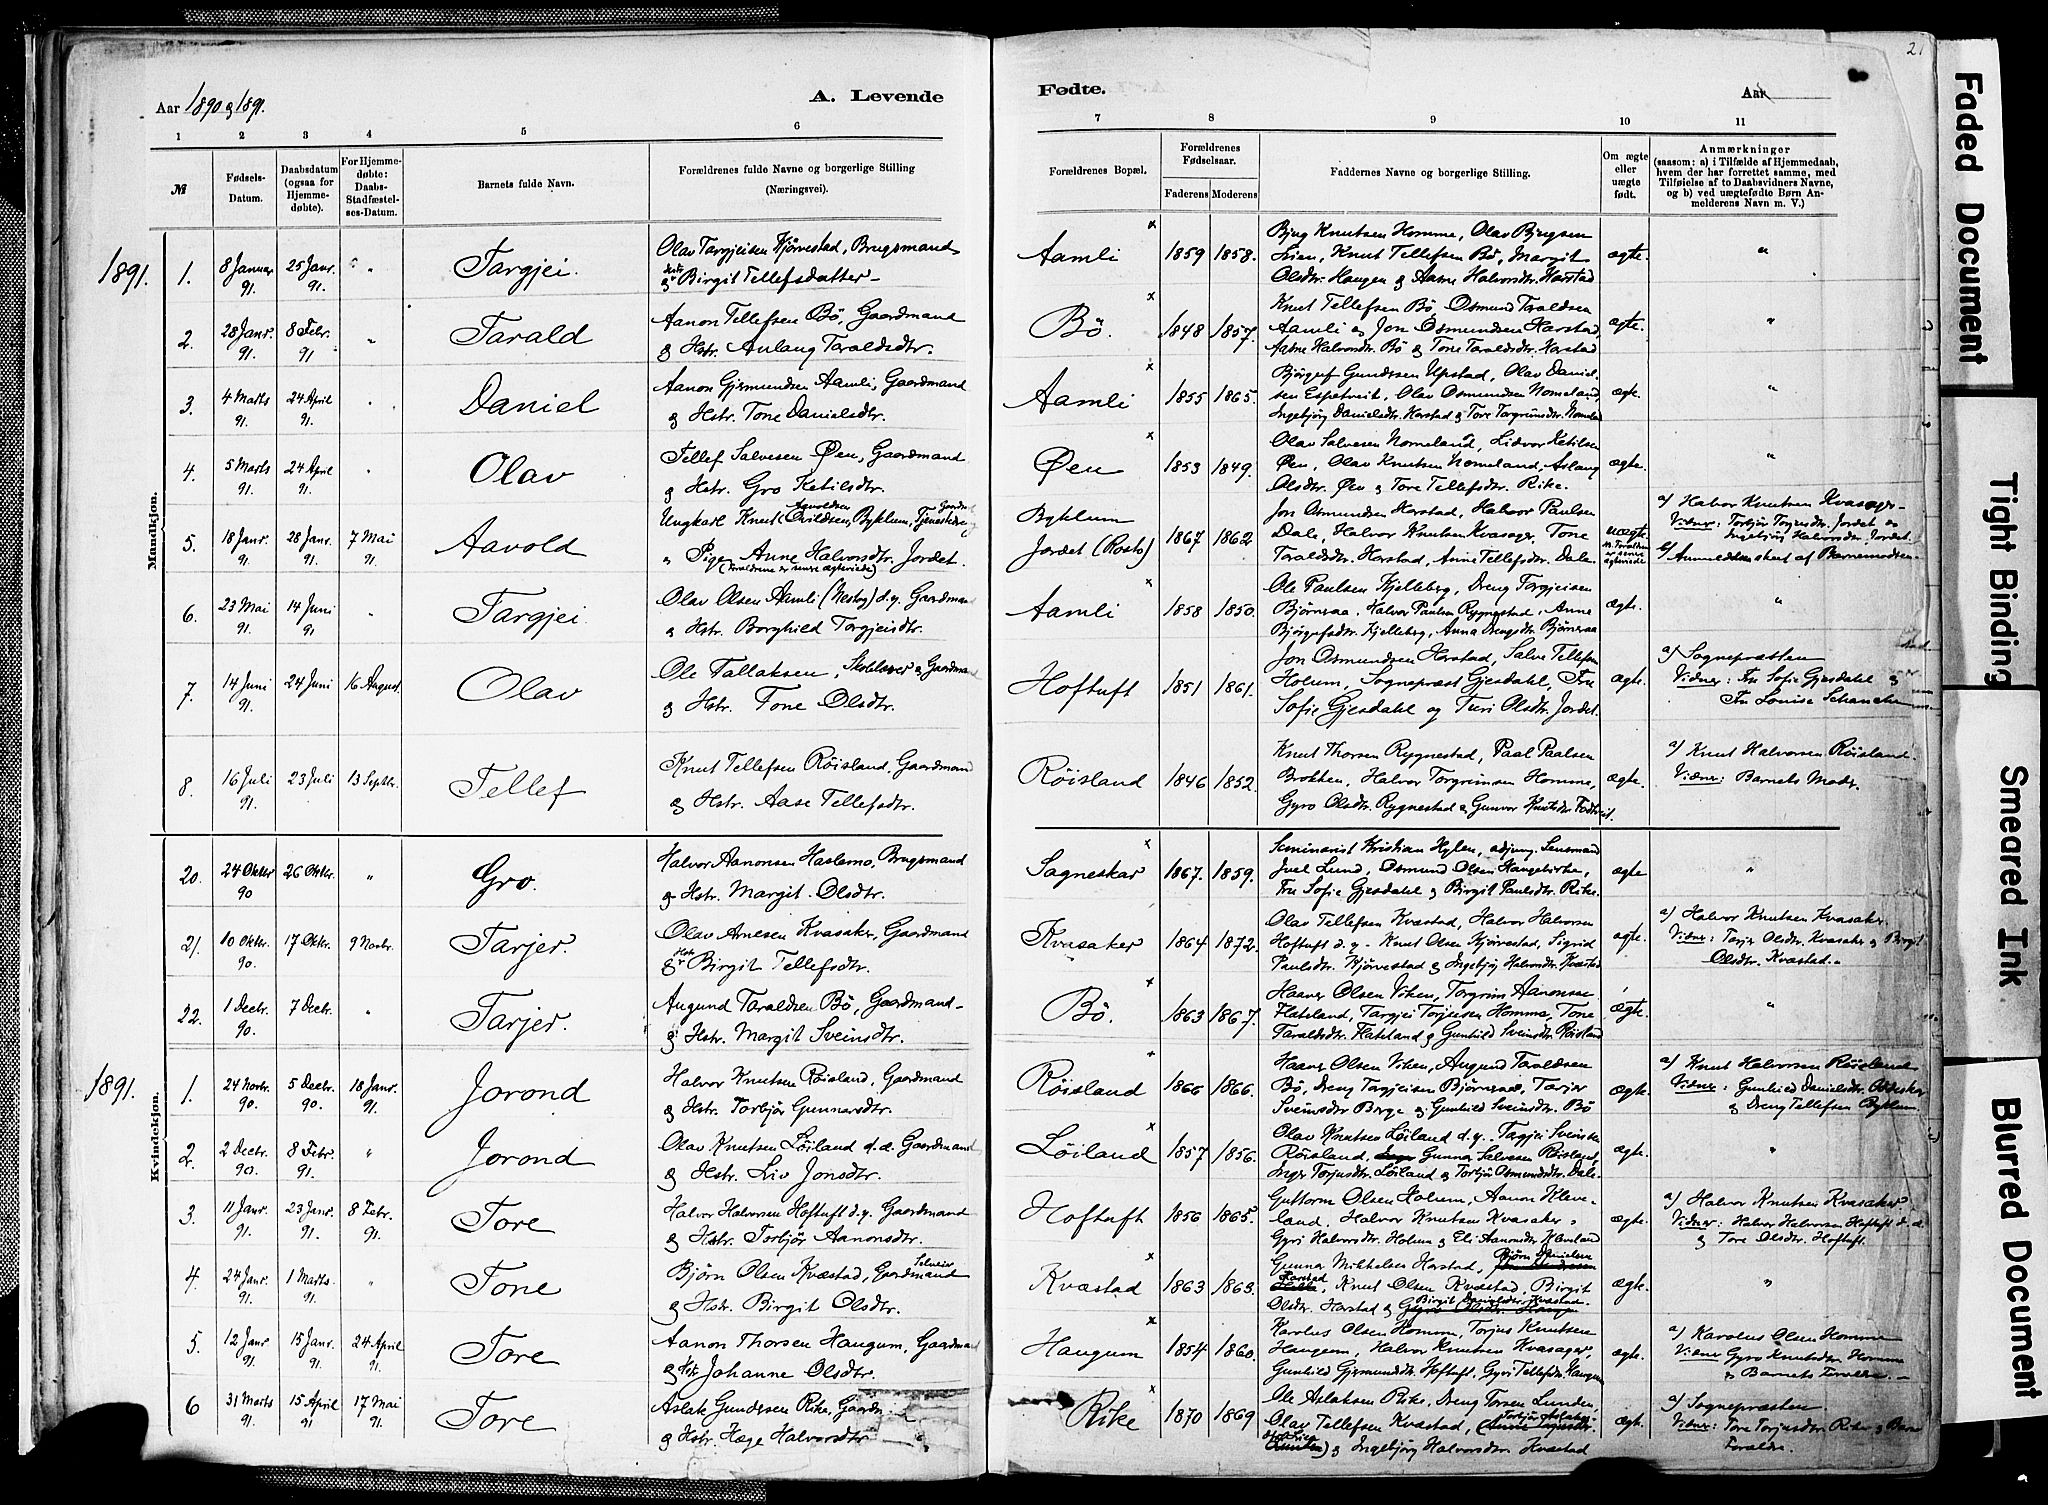 21
Aar 1890 og 1891.
A. Levende
Fødte.
Aar
1 2 3 4 5 6 7 8 9 10 11
№
Fødsels-Datum.
Daabsdatum (ogsaa for Hjemme-døbte).
For Hjemme-døbte: Daabs-Stadfæstel-ses-Datum.
Barnets fulde Navn.
Forældrenes fulde Navne og borgerlige Stilling
(Næringsvei).
Forældrenes Bopæl.
Forældrenes Fødselsaar.
Faderens Moderens
Faddernes Navne og borgerlige Stilling.
Om ægte eller uægte født.
Anmærkninger
(saasom: a) i Tilfælde af Hjemmedaab,
hvem der har forrettet samme, med
Tilføielse af to Daabsvidners Navne,
og b) ved uægtefødte Børn An-
melderens Navn m. V.)
Mandkjøn.
1891. 1. 8 Januar 91. 25 Janr. 91. " Targjei.
Olav Targjeisen Kjørvestad, Brugsmand
& Hstr Birgit Tellefsdatter
Aamli 1859 1858.
Bjug Knutsen Homme, Olav Bjugsen
Lien, Knut Tellefsen Bø, Margit
Olsdtr. Haugen & Aasne Halvorsdtr. Harstad
ægte. "
2. 28 Janr. 91. 8 Febr. 91 " Tarald
Aanon Tellefsen Bø, Gaardmand
& Hstr. Aslaug Taraldsdtr.
Bø. 1848 1857.
Knut Tellefsen Bø, Osmund Taraldsen
Aamli & Jon Osmundsen Harstad,
Aasne Halvorsdtr. Bø & Tone Taraldsdtr. Harstad
ægte. "
3. 4 Marts 91. 24 April 91. " Daniel
Aanon Gjermundsen Aamli, Gaardmand
& Hstr. Tone Danielsdtr.
Aamli 1855 1865.
Bjørguf Gundersen Upstad, Olav Daniel-
sen Espetveit, Olav Osmundsen Nomeland,
Ingebjørg Danielsdtr. Harstad & Tore Torgrimsdtr. Nomeland
ægte. "
4. 5 Marts 91. 24 April 91. " Olav
Tellef Salvesen Øen, Gaardmand
& Hstr. Gro Ketilsdtr.
Øen 1853 1849.
Olav Salvesen Nomeland, Lidvor Ketilsen
Øen, Olav Knutsen Nomeland, Aslaug
Olsdtr. Øen & Tore Tellefsdtr. Rike.
ægte. "
5. 18 Janr. 91. 28 Janr. 91. 7 Mai 91. Aavold
Ungkarl Knut Aavoldsen Byklum, Tjenestedreng
" Pige Anne Halvorsdtr. Jordet.
(Forældrene er senere ægteviede)
Byklum
Jordet (Rosto) 1867 1862
Jon Osmundsen Harstad, Halvor Paulsen
Dale, Halvor Knutsen Kvasager, Tone
Taraldsdtr. Harstad, Anne Tellefsdtr. Dale
uægte.
a) Halvor Knutsen Kvasager
Vidner: Torbjør Torjusdtr. Jordet &
Ingebjørg Halvorsdtr. Jordet.
b) Anmeldelsen skeet af Barnemoderen
6. 23 Mai 91. 14 Juni 91 " Targjei
Olav Olsen Aamli (Nestog) d.y. Gaardmand
& Hstr. Borghild Torgjeisdtr.
Aamli 1858 1850.
Ole Paulsen Kjelleberg, Dreng Torgjeisen
Bjørnraa, Halvor Paulsen Rygnestad, Anne
Bjørgufsdtr. Kjelleberg, Anna Drengsdtr. Bjørnraa
ægte. "
7. 14 Juni 91. 24 Juni 91. 16 August. Olav
Ole Tallaksen, Skolelærer & Gaardmand
& Hstr. Tone Olsdtr.
Hoftuft 1851 1861.
Jon Osmundsen Harstad, Salve Tellefsen
Holum, Sognepræst Gjesdahl, Fru
Sofie Gjesdahl og Turi Olsdtr. Jordet.
ægte.
a) Sognepræsten
Vidner: Fru Sofie Gjesdahl &
Fru Louise Schanche
8. 16 Juli 91. 23 Juli 13 Septbr. Tellef
Knut Tellefsen Røisland, Gaardmand
& Hstr. Aase Tellefsdtr.
Røisland 1846 1852.
Knut Thorsen Rygnestad, Paal Paalsen
Brokken, Halvor Torgrimsen Homme,
Gyro Olsdtr. Rygnestad & Gunvor Knutsdtr.
ægte.
a) Knut Halvorsen Røisland.
Vidner: Barnets Moder.
Kvindekjøn.
20. 24 Oktbr 90 26 Oktbr. " Gro.
Halvor Aanonsen Haslemo, Brugsmand
& Hstr. Margit Olsdtr.
Sagneskar 1867. 1859.
Seminarist Kristian Hylen, adjung. Lensmand
Juel Lund, Osmund Olsen Haugebirke,
Fru Sofie Gjesdahl & Birgit Paulsdtr. Rike.
ægte "
21. 10 Oktbr. 90. 17 Oktr. 9 Novbr. Tarjer.
Olav Arnesen Kvasaker, Gaardmand
& Hstr Birgit Tellefsdtr.
Kvasaker 1864 1872.
Olav Tellefsen Kvæstad, Halvor Halvorsen
Hoftuft d.y. Knut Olsen Kjørvestad, Sigrid
Paulsdtr. Kjørvestad & Ingebjørg Halvorsdtr. Kvæstad
ægte.
a) Halvor Knutsen Kvasaker.
Vidner: Tarjer Olsdtr. Kvasaker & Birgit
Olsdtr. Kvæstad.
22. 1 Decbr. 90. 7 Decbr. " Tarjer.
Augund Taraldsen Bø, Gaardmand
& Hstr. Margit Sveinsdtr.
Bø. 1863 1867.
Haaver Olsen Viken, Torgrim Aanonsen
Flateland, Targjei Torjeisen Homme, Tone
Taraldsdtr. Flateland & Gunhild Sveinsdtr. Røisland
ægte. "
1891. 1. 24 Novbr. 90. 5 Decbr. 90. 18 Janr. 91. Jorond
Halvor Knutsen Røisland, Gaardmand
& Hstr. Torbjør Gunnarsdtr.
Røisland 1866 1866.
Haaver Olsen Viken, Augund Taraldsen
Bø, Dreng Targjeisen Bjørnraa, Tarjer
Sveinsdtr Berge & Gunhild Sveinsdtr. Bø
ægte.
a) Knut Halvorsen Røisland
Vidner: Gunhild Danielsdtr.
& Dreng Tellefsen Byklum.
2. 2 Decbr. 90. 8 Febr. 91. " Jorond
Olav Knutsen Løiland d.æ. Gaardmand
& Hstr. Liv Jonsdtr.
Løiland 1857 1856.
Olav Knutsen Løiland d.y. Targjei Sveinsen
Røisland, Gunnar Salvesen Røisland,
Inger Torjusdtr. Løiland & Torbjør Osmundsdtr. Dale
ægte. "
3. 11 Janr. 91. 23 Janr. 91. 8 Febr. 91. Tore
Halvor Halvorsen Hoftuft d.y. Gaardmand
& Hstr. Torbjør Aanonsdtr.
Hoftuft 1856 1865.
Guttorm Olsen Holum, Aanon Kleve-
land, Halvor Knutsen Kvasaker,
Gyri Halvorsdtr. Holum & Eli Aanonsdtr. Kleveland
ægte.
a) Halvor Knutsen Kvasaker
Vidner: Halvor Halvorsen Hoftuft d.æ.
& Tore Olsdtr. Hoftuft.
4. 24 Janr. 91. 1 Marts. " Tone
Bjørn Olsen Kvæstad, Gaardmand Selveier
& Hstr. Birgit Olsdtr.
Kvæstad 1863 1863.
Gunnar Mikkelsen Harstad, Bjørn Danielsen
Harstad, Knut Olsen Kvæstad, Birgit
Olsdtr. Harstad & Birgit Danielsdtr. Kvæstad.
ægte. "
5. 12 Janr. 91. 15 Janr. 91. 24 April 91. Tore
Aanon Thorsen Haugum, Gaardmand
& Hstr Johanne Olsdtr.
Haugum 1854 1860.
Karolus Olsen Homme, Torjus Knutsen
Haugum, Halvor Knutsen Kvasager,
Gunhild Gjermundsdtr. Hoftuft, Gyri Tellefsdtr. Haugum
ægte.
a) Karolus Olsen Homme
Vidner Gyro Knutsdtr. Homme
& Barnets Forældre.
6 31 Marts 91. 15 April 91 17 Mai 91. Tore
Aslak Gundersen Rike, Gaardm
& Hstr. Hæge Halvorsdtr
Rike 1870 1869
Ole Aslaksen Rike, Dreng Torsen Lunden,
Olav Tellefsen Kvæstad,
& Ingebjørg Halvorsdtr Kvæstad
ægte.
a) Sognepræsten
Vidner: Tore Torjusdtr. Rike & Barnets
Forældre.
Faded Document
Tight Binding
Smeared Ink
Blurred Document